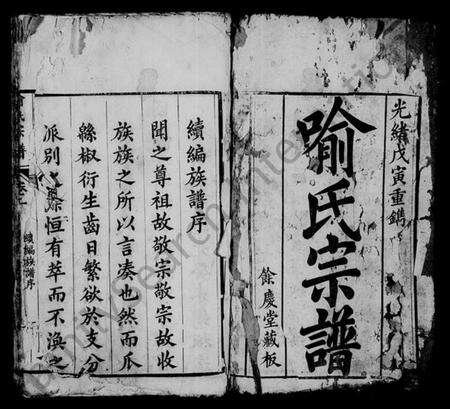 光緒戊寅重鐫
喻氏宗譜
餘慶堂藏板
續編族譜序
聞之尊祖故敬宗敬宗故收
族族之所以言湊也然而瓜
緜椒衍生齒日繁欲於支分
派別之際恒有萃而不渙之
續編族譜序